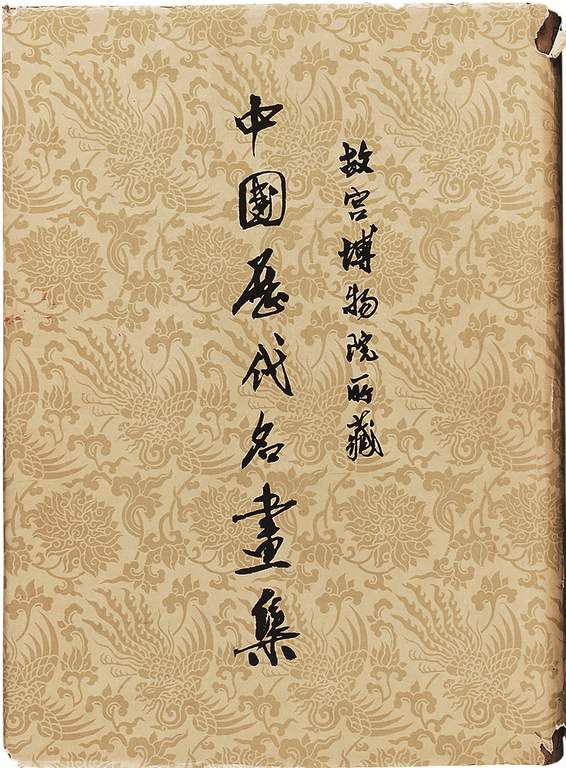 故宫博物院所藏
中國历代名畫集